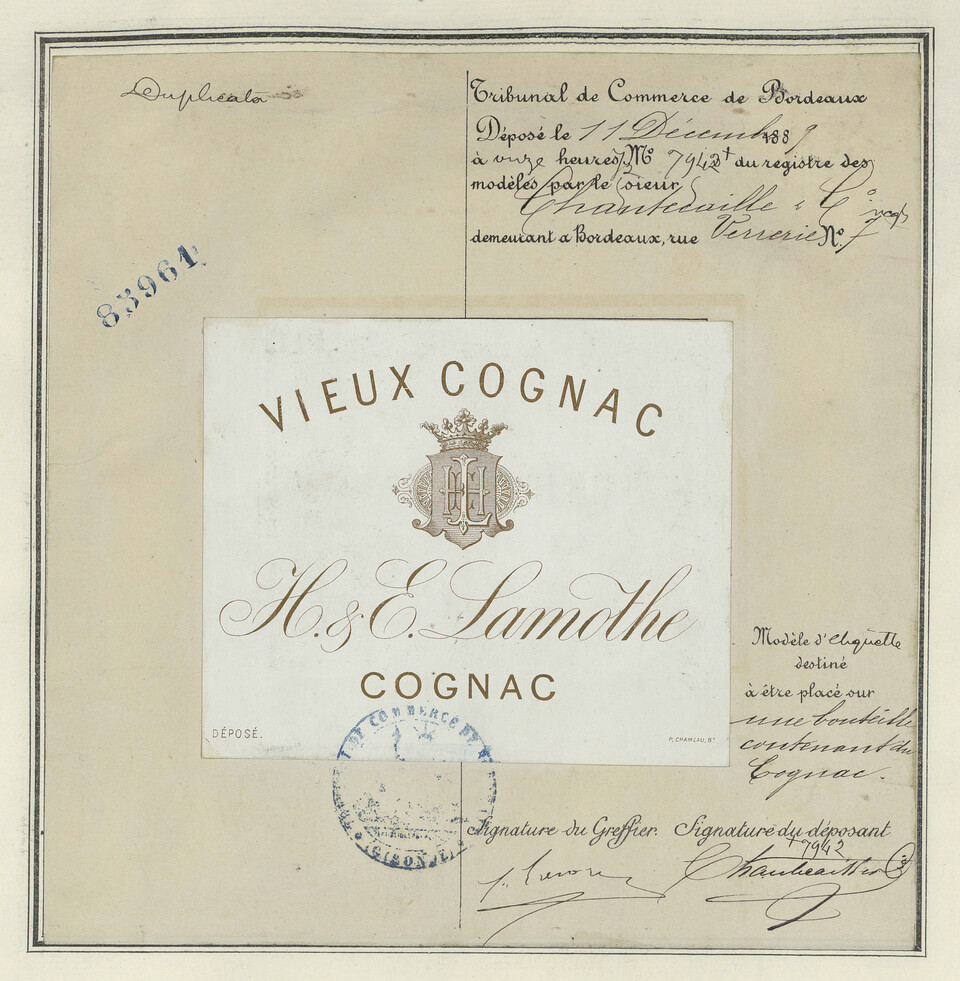 Duplicata
Tribunal de Commerce de Bordeaux
Déposé le 11 Décembre 1889
à onze heures ½ No 7942 du registre des
modèles par le sieur
Chantecaille & Co
demeurant à Bordeaux, rue Verrerie No. 7
83961
VIEUX COGNAC
H. & E. Lamothe
COGNAC
DÉPOSÉ.
P. CHAMEAU, Bx
Modèle d'étiquette
destiné
à être placé sur
une bouteille
contenant du
Cognac.
COMMERCE DE
Signature du Greffier. Signature du déposant
7942